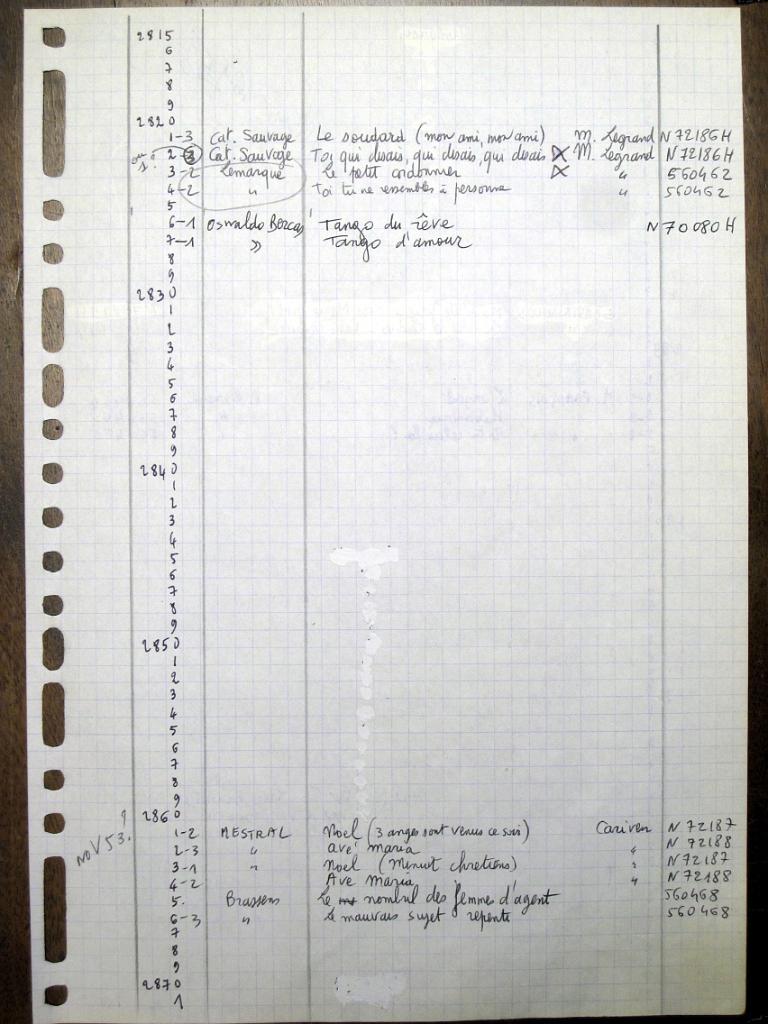 2815
6
7
8
9
2820
1-3 Cat. Sauvage Le soudard (mon ami, mon ami) M. Legrand N 72186 H
ou 1? 2-3 Cat. Sauvage Toi qui disais, qui disais, qui disais M. Legrand N 72186 H
3-2 Lemarque Le petit cordonnier " 560462
4-2 " Toi tu ne ressembles à personne " 560462
5
6-1 Oswaldo Bercas Tango du rêve N 70080 H
7-1 » Tango d'amour
8
9
2830
1
2
3
4
5
6
7
8
9
2840
1
2
3
4
5
6
7
8
9
2850
1
2
3
4
5
6
7
8
9
? 2860
nov 53. 1-2 MESTRAL Noel (3 anges sont venus ce soir) Cariven N 72187
2-3 " avé maria " N 72188
3-1 " Noel (Minuit chretiens) " N 72187
4-2 Ave Maria " N 72188
5. Brassens Le nombril des femmes d'agent 560468
6-3 " Le mauvais sujet repenti 560468
7
8
9
2870
1